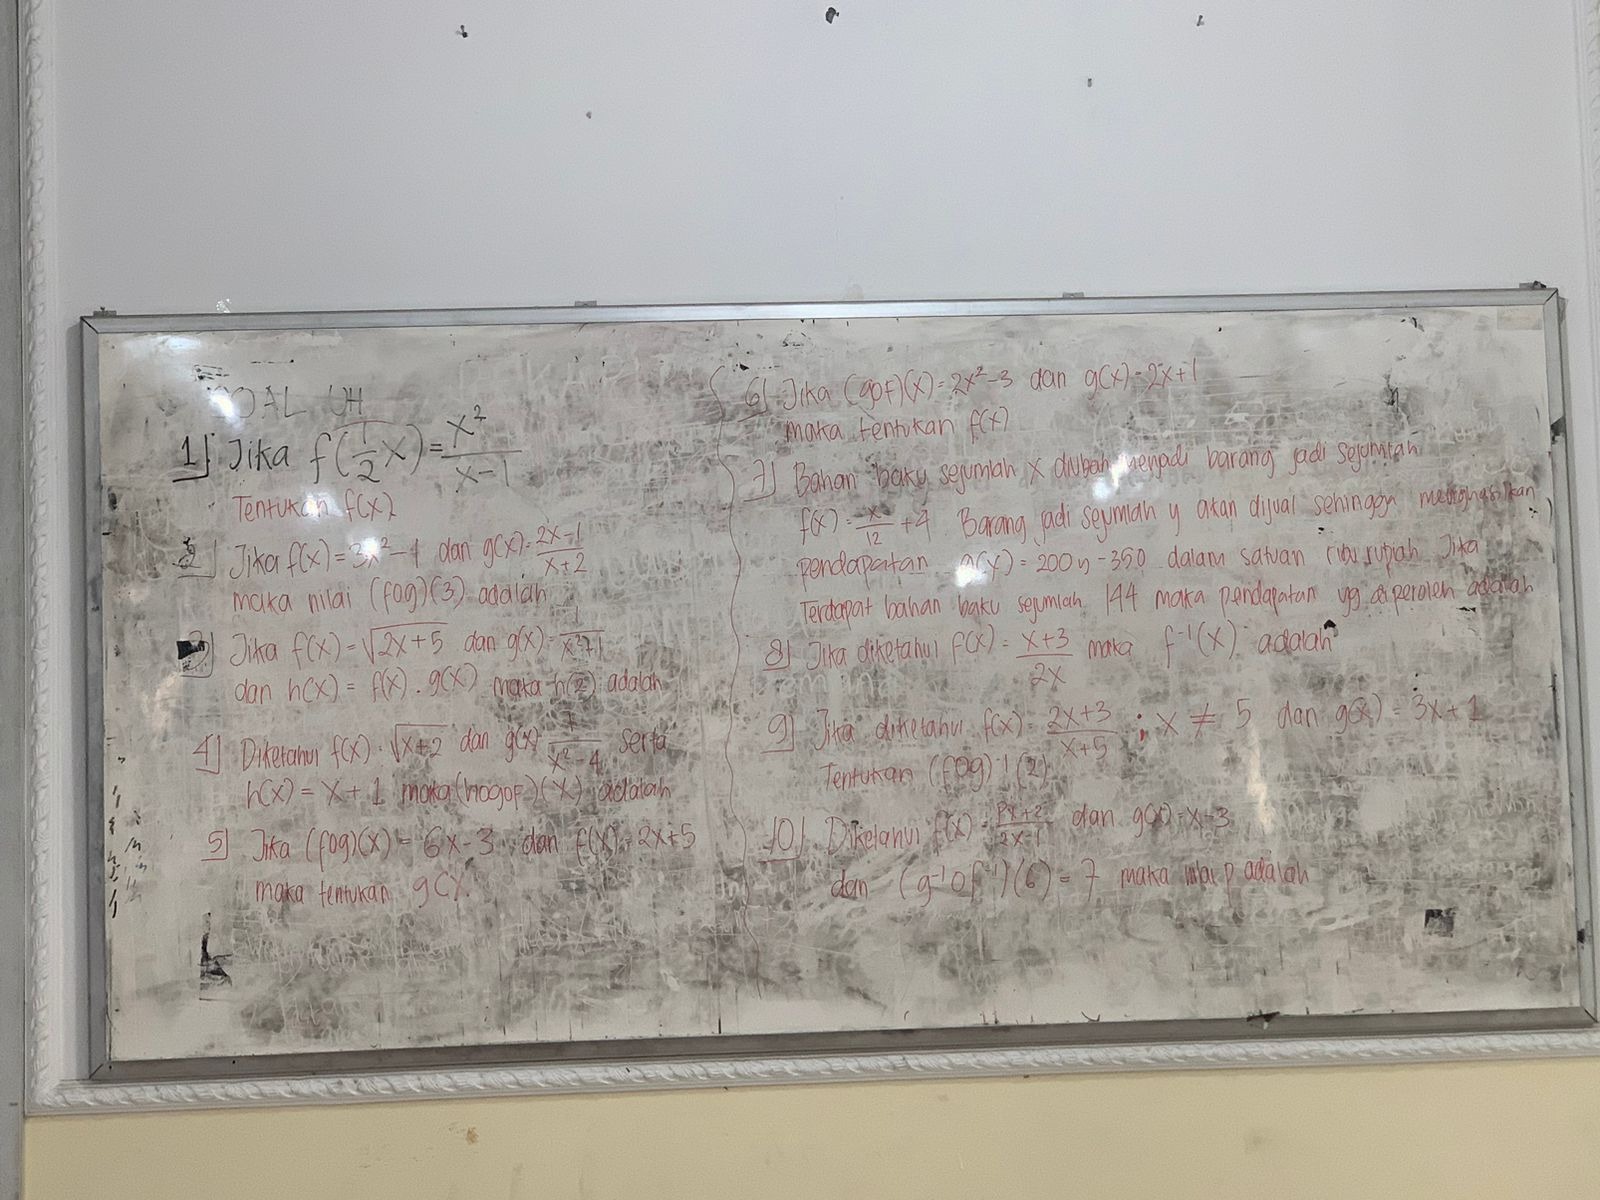 SOAL UH
1] Jika f(1/2 x) = x²/(x-1)
Tentukan f(x)
2] Jika f(x) = 3x²-1 dan g(x) = (2x-1)/(x+2)
maka nilai (fog)(3) adalah
3] Jika f(x) = √(2x+5) dan g(x) = 1/(x²+1)
dan h(x) = f(x) . g(x) maka h(2) adalah
4] Diketahui f(x) = √(x+2) dan g(x) = 1/(x²-4) serta
h(x) = x+1 maka (hogof)(x) adalah
5] Jika (fog)(x) = 6x-3 dan f(x) = 2x+5
maka tentukan g(x).
6] Jika (gof)(x) = 2x²-3 dan g(x) = 2x+1
maka tentukan f(x)
7] Bahan baku sejumlah x diubah menjadi barang jadi sejumlah
f(x) = x/12 + 4 Barang jadi sejumlah y akan dijual sehingga menghasilkan
pendapatan g(y) = 200y - 350 dalam satuan ribu rupiah. Jika
Terdapat bahan baku sejumlah 144 maka pendapatan yg diperoleh adalah
8] Jika diketahui f(x) = (x+3)/(2x) maka f⁻¹(x) adalah
9] Jika diketahui f(x) = (2x+3)/(x+5) ; x ≠ 5 dan g(x) = 3x+1
Tentukan (fog)⁻¹(2)
10] Diketahui f(x) = (Px+2)/(2x-1) dan g(x) = x-3
dan (g⁻¹of⁻¹)(6) = 7 maka nilai p adalah